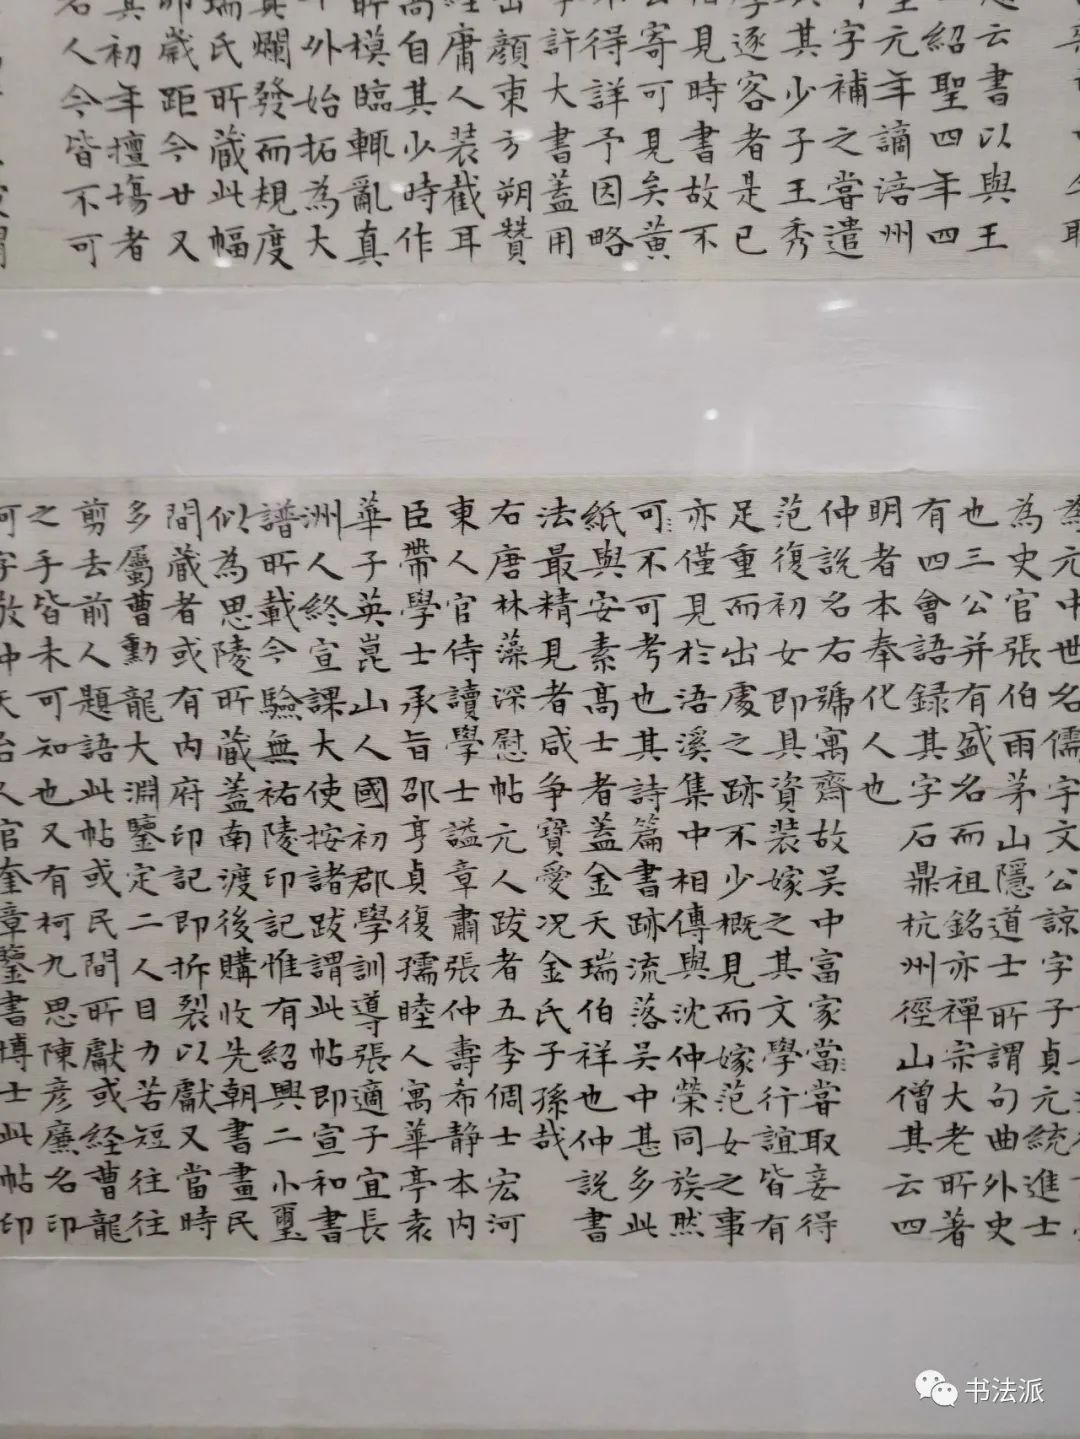 云書以與王
紹聖四年四
元年謫涪州
字補之嘗遣
其少子王秀
逐客者是已
見時書故不
寄可見矣黃
得詳予因略
許大書蓋用
顏東方朔贊
庸人装截耳
自其少時作
模臨輒亂真
外始拓為大
爛發而規度
氏所蔵此幅
歲距今廿又
初年擅場者
人今皆不可
元中世名儒字文公諒字子貞元統進士
為史官張伯雨茅山隱道士所謂句曲外史
也三公并有盛名而祖銘亦禪宗大老所著
有四會語録其字石鼎杭州徑山僧其云四
明者本奉化人也
仲說名右號寓齋故吳中富家當嘗取妾得
范復初女即具資装嫁之其文學行誼皆有
足重而出處之跡不少概見而嫁范女之事
亦僅見於浯溪集中相傳與沈仲榮同族然
可不可考也其詩篇書跡流落吳中甚多此
紙與安素高士者蓋金天瑞伯祥也仲說書
法最精見者咸争寶愛况金氏子孫哉
右唐林藻深慰帖元人跋者五李倜士宏河
東人官侍讀學士謚章肅張仲壽希静本内
臣帶學士承旨邵亨貞復孺睦人寓華亭袁
華子英崑山人國初郡學訓導張適子宜長
洲人終宣課大使按諸跋謂此帖即宣和書
譜所載今驗無祐陵印記惟有紹興二小璽
似為思陵所蔵蓋南渡後購收先朝書畫民
間蔵者或有内府印記即拆裂以獻又當時
多屬曹勳龍大淵鑒定二人目力苦短往往
剪去前人題語此帖或民間所獻或経曹龍
之手皆未可知也又有柯九思陳彦廉名印
柯字敬仲天台人官奎章鑒書博士此帖印
书法派